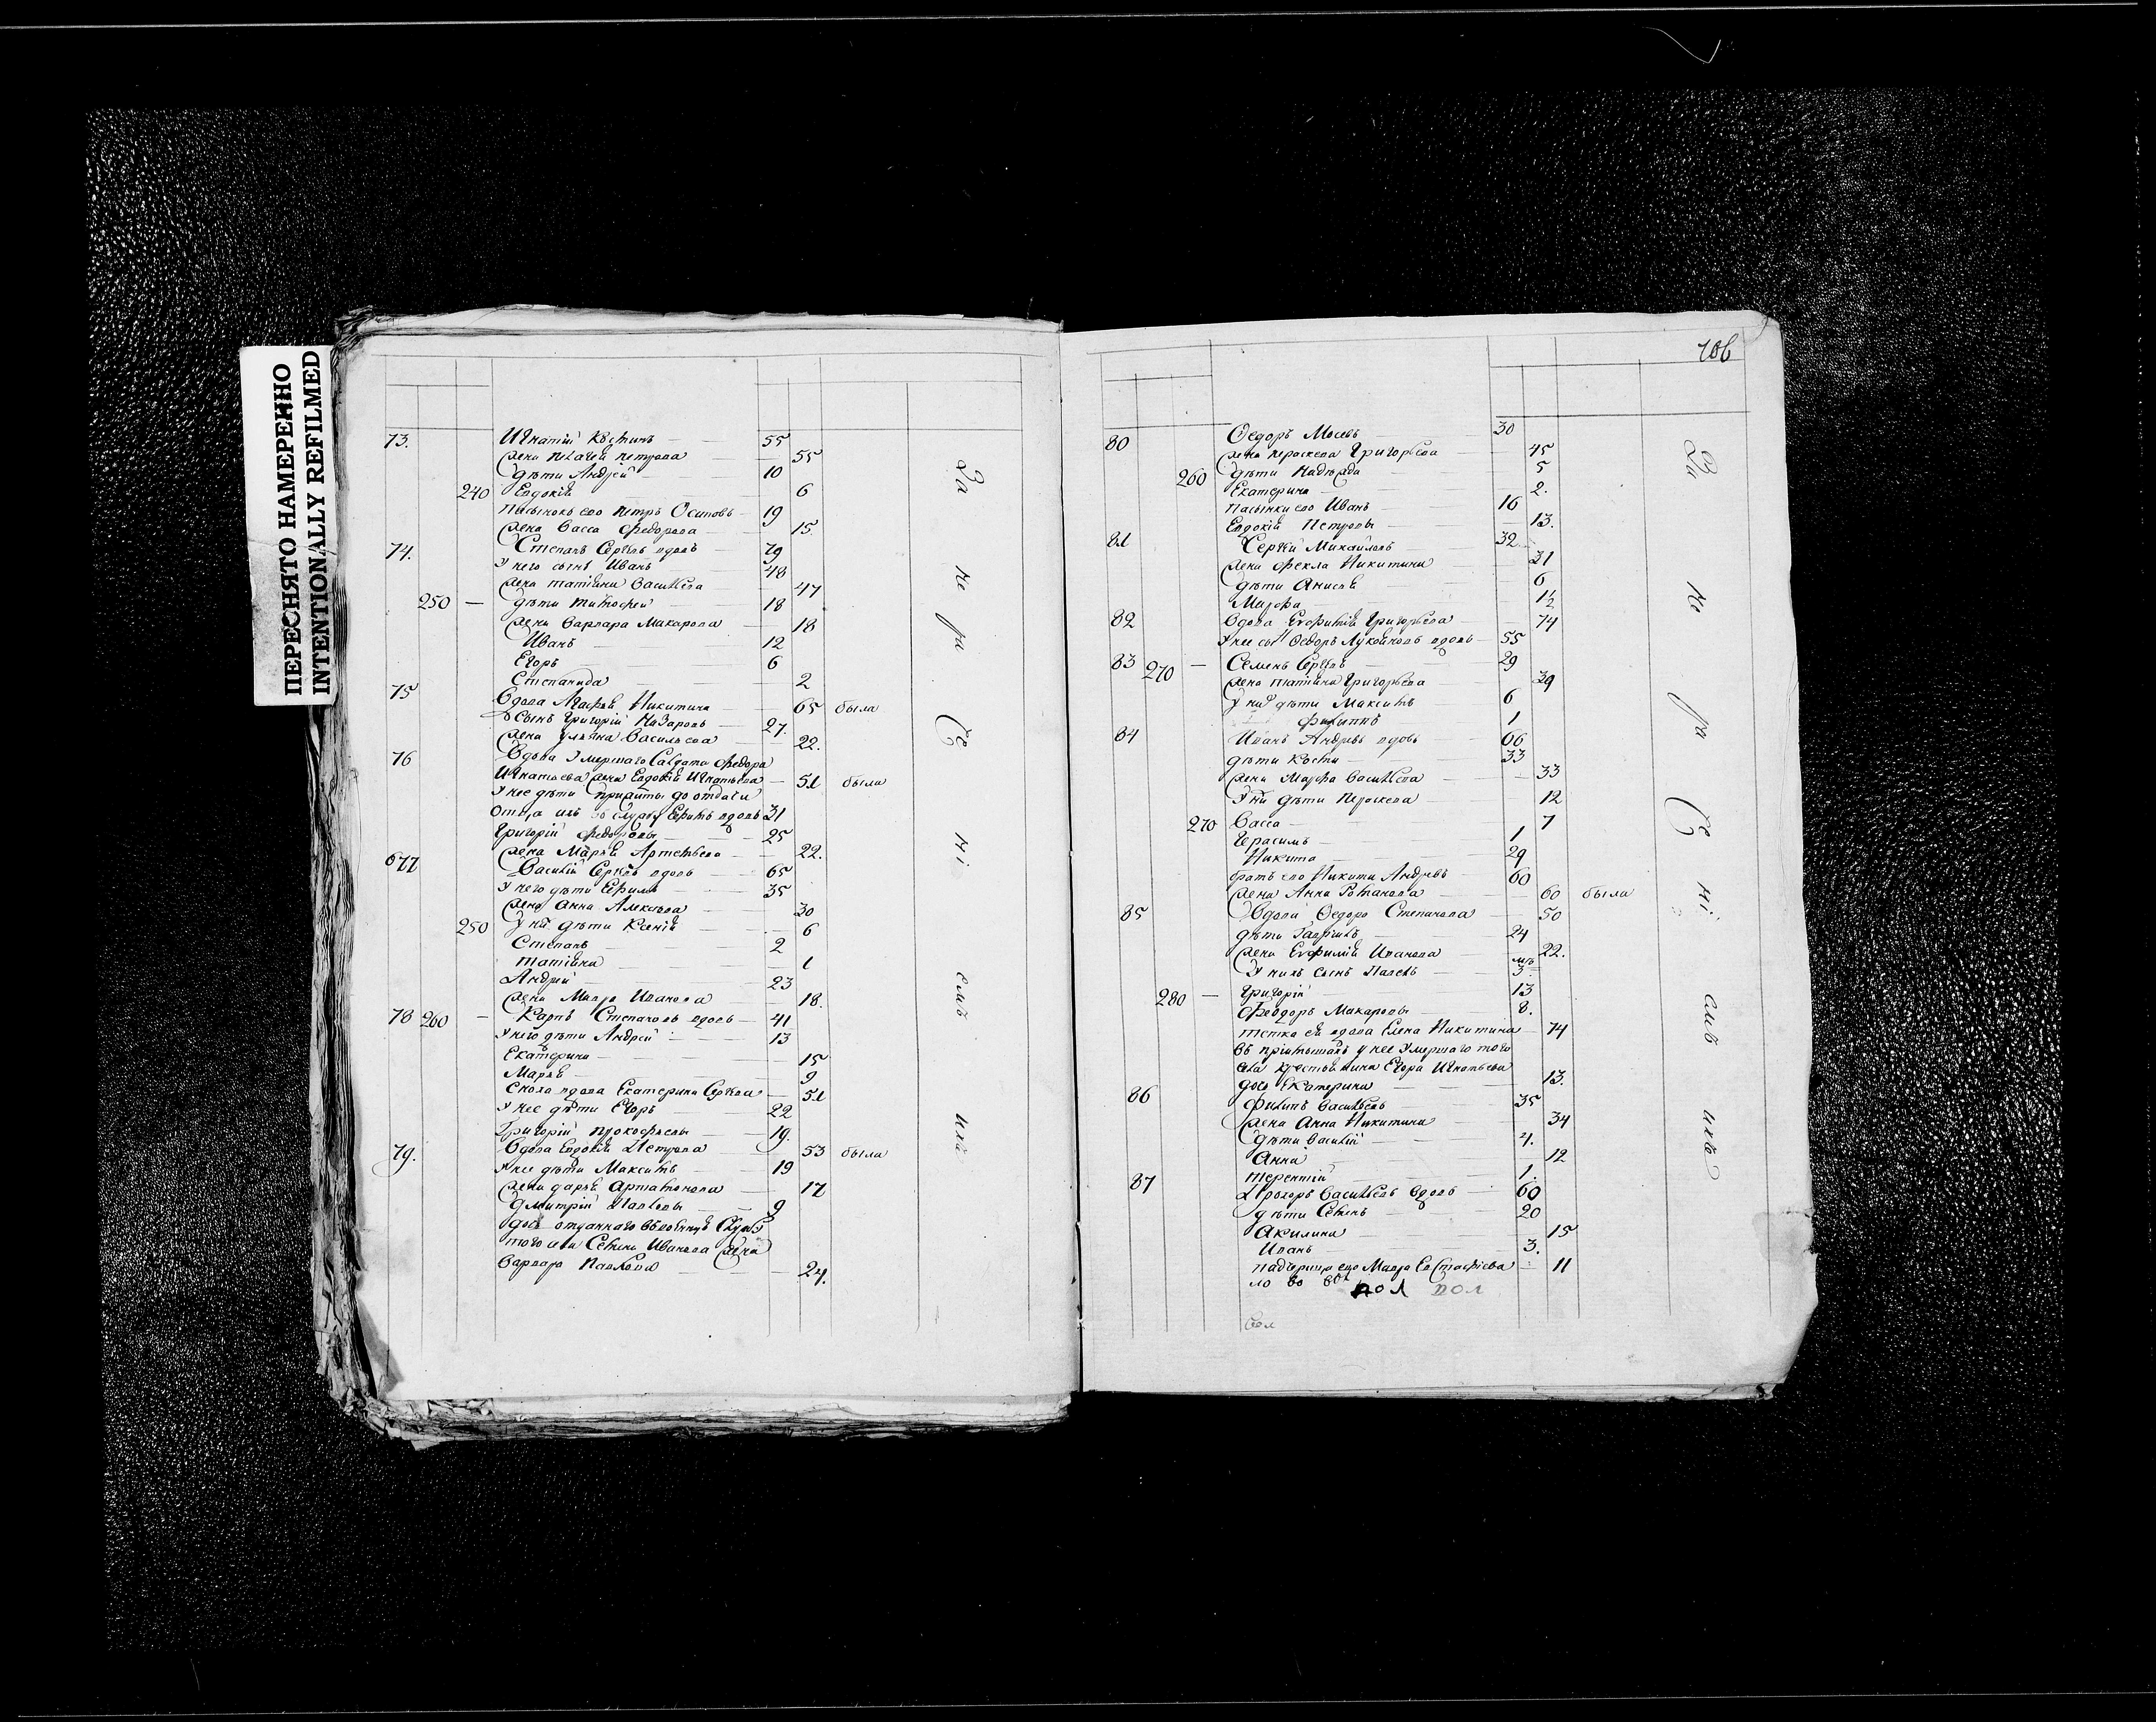 ПЕРЕСНЯТО НАМЕРЕННО
INTENTIONALLY REFILMED
73. Игнатій Костинъ 55
жена Пелагея Петрова 55
дѣти Андрей 10
240 Евдокія 6
пасынокъ его Петръ Осиповъ 19
жена Васса Федорова 15.
74. Степанъ Сергѣвъ вдовъ 79
У него сынъ Иванъ 48
жена Татіяна Васильева 47
250 дѣти Тимофей 18
жена Варвара Макарова 18
Иванъ 12
Егоръ 6
Степанида 2
75 Вдова Агафья Никитина 65 была
сынъ Григорій Назаровъ 27.
жена Ульяна Васильева 22.
76 Вдова умершаго Салдата Федора
Игнатьева жена Евдокія Игнатьева 51 была
У нее дѣти прижиты до отдачи
отца ихъ во службу Ефимъ вдовъ 31
Григорій Федоровы 25
жена Марья Артемьева 22.
677 Василій Сергѣвъ вдовъ 65
У него дѣти Ефимъ 35
жена Анна Алексѣва 30
250 У нихъ дѣти Ксенія 6
Степанъ 2
Татіяна 1
Андрей 23
жена Мавра Иванова 18.
78 260 Карпъ Степановъ вдовъ 41
У него дѣти Андрей 13
Екатерина 15
Марья 9
сноха вдова Екатерина Сергѣва 51
У нее дѣти Егоръ 22
Григорій Прокофьевы 19.
79. Вдова Евдокія Петрова 53 была
У нее дѣти Максимъ 19
жена Дарья Артамонова 17
Дмитрій Павловы 9
отданнаго въ военную службу
того села Семена Иванова жена
Варвара Павлова 24.
За ке ра Се ні емъ ихъ
106
80 Федоръ Мосевъ 30
жена Параскева Григорьева 45
260 дѣти Надежда 5
Екатерина 2.
пасынки его Иванъ 16
Евдокія Петровы 13.
81 Сергѣй Михайловъ 32
жена Фекла Никитина 31
дѣти Анисья 6
Марфа 1½
82 Вдова Евфимія Григорьева 74
У нее сынъ Федоръ вдовъ 55
83 270 Семенъ Сергѣвъ 29
жена Татіяна Григорьева 39
У нихъ дѣти Максимъ 6
Филиппъ 1
84 Иванъ Андрѣвъ вдовъ 66
дѣти Кости 33
жена Марфа Васильева 33
У нихъ дѣти Параскева 12
270 Васса 7
Герасимъ 1
Никита 29
братъ его Никита Андрѣвъ 60
жена Анна Романова 60 была
85 Вдова Федора Степанова 50
дѣти Гавріилъ 24
жена Евфимія Иванова 22.
У нихъ сынъ Павелъ 3
280 Григорій 13
Феодоръ Макаровы 8.
тетка ея вдова Елена Никитина 74
въ пріимышахъ у нее умершаго того
села крестьянина Егора Игнатьева
дочь Екатерина 13.
86 Филипъ Васильевъ 35
жена Анна Никитина 34
дѣти Василій 4.
Анна 12
Терентій 1.
87 Прохоръ Васильевъ вдовъ 60
дѣти Семенъ 20
Акилина 15
Иванъ 3.
падчерица его Мавра Евстафіева 11
ло во вол пол пол
За ке ра Се ні емъ ихъ